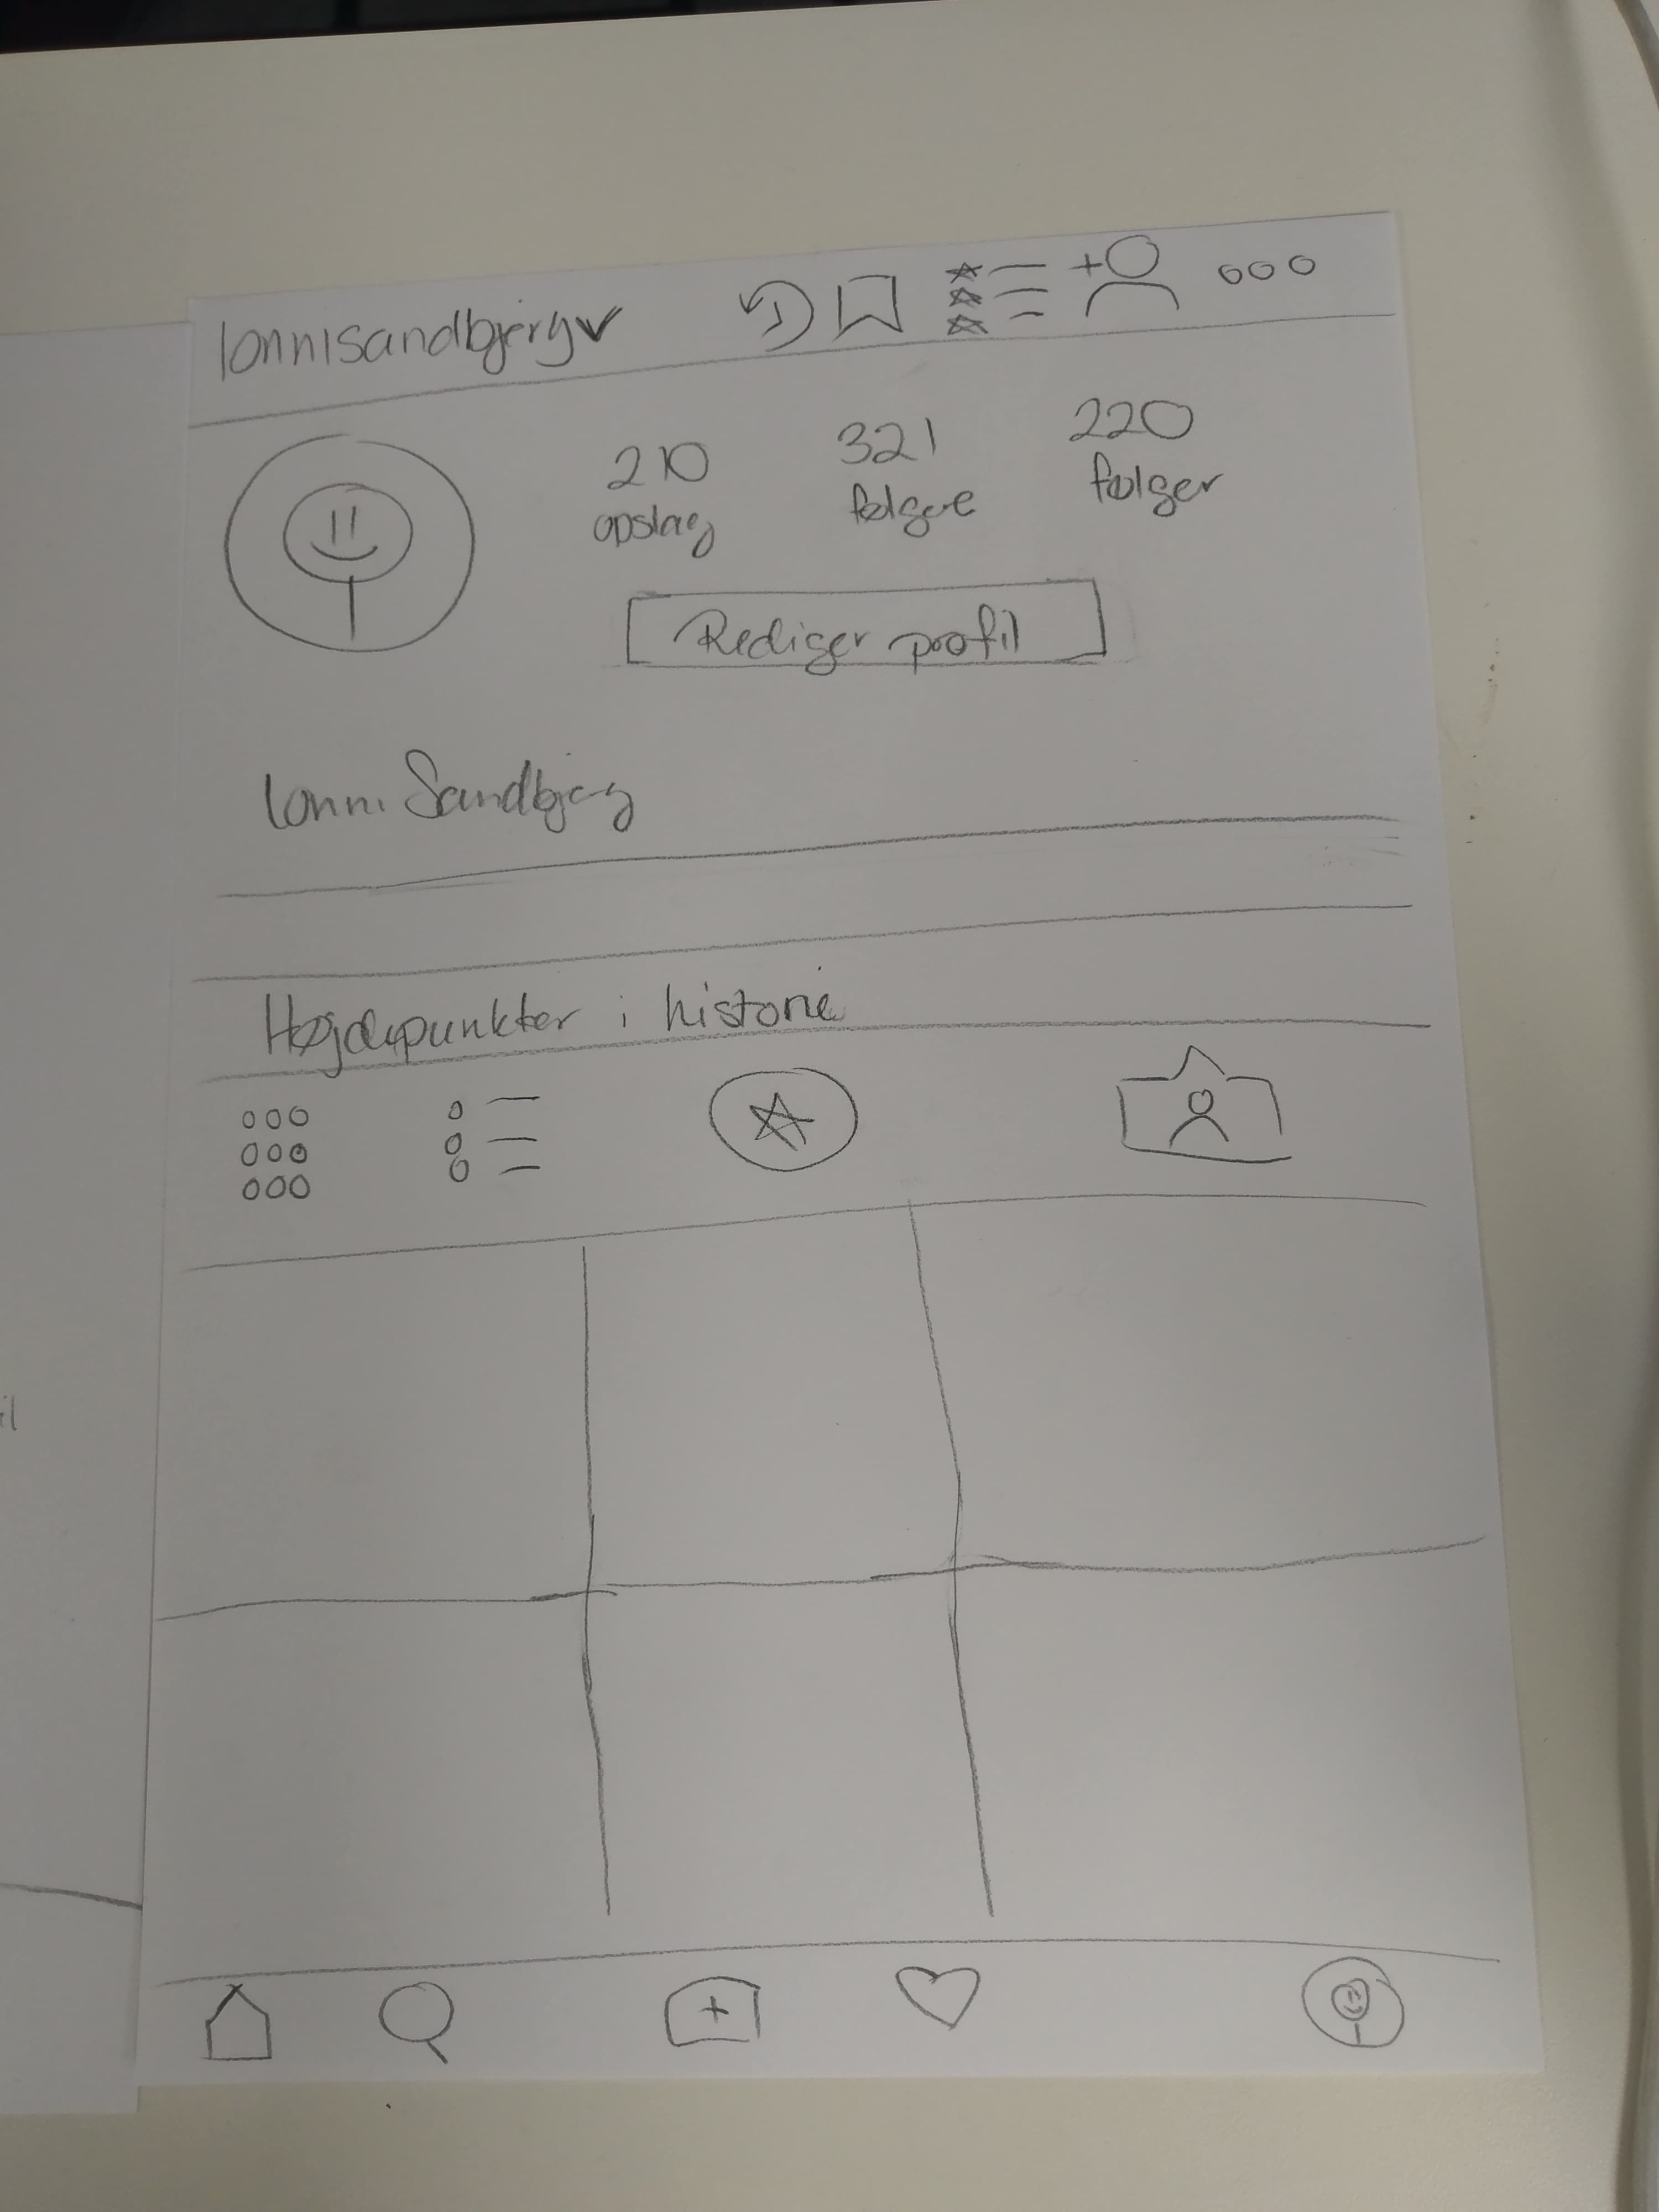 lonnisandbjerg
210 321 220
opslag følgere følger
Rediger profil
lonni Sandbjerg
Højdepunkter i historie
il